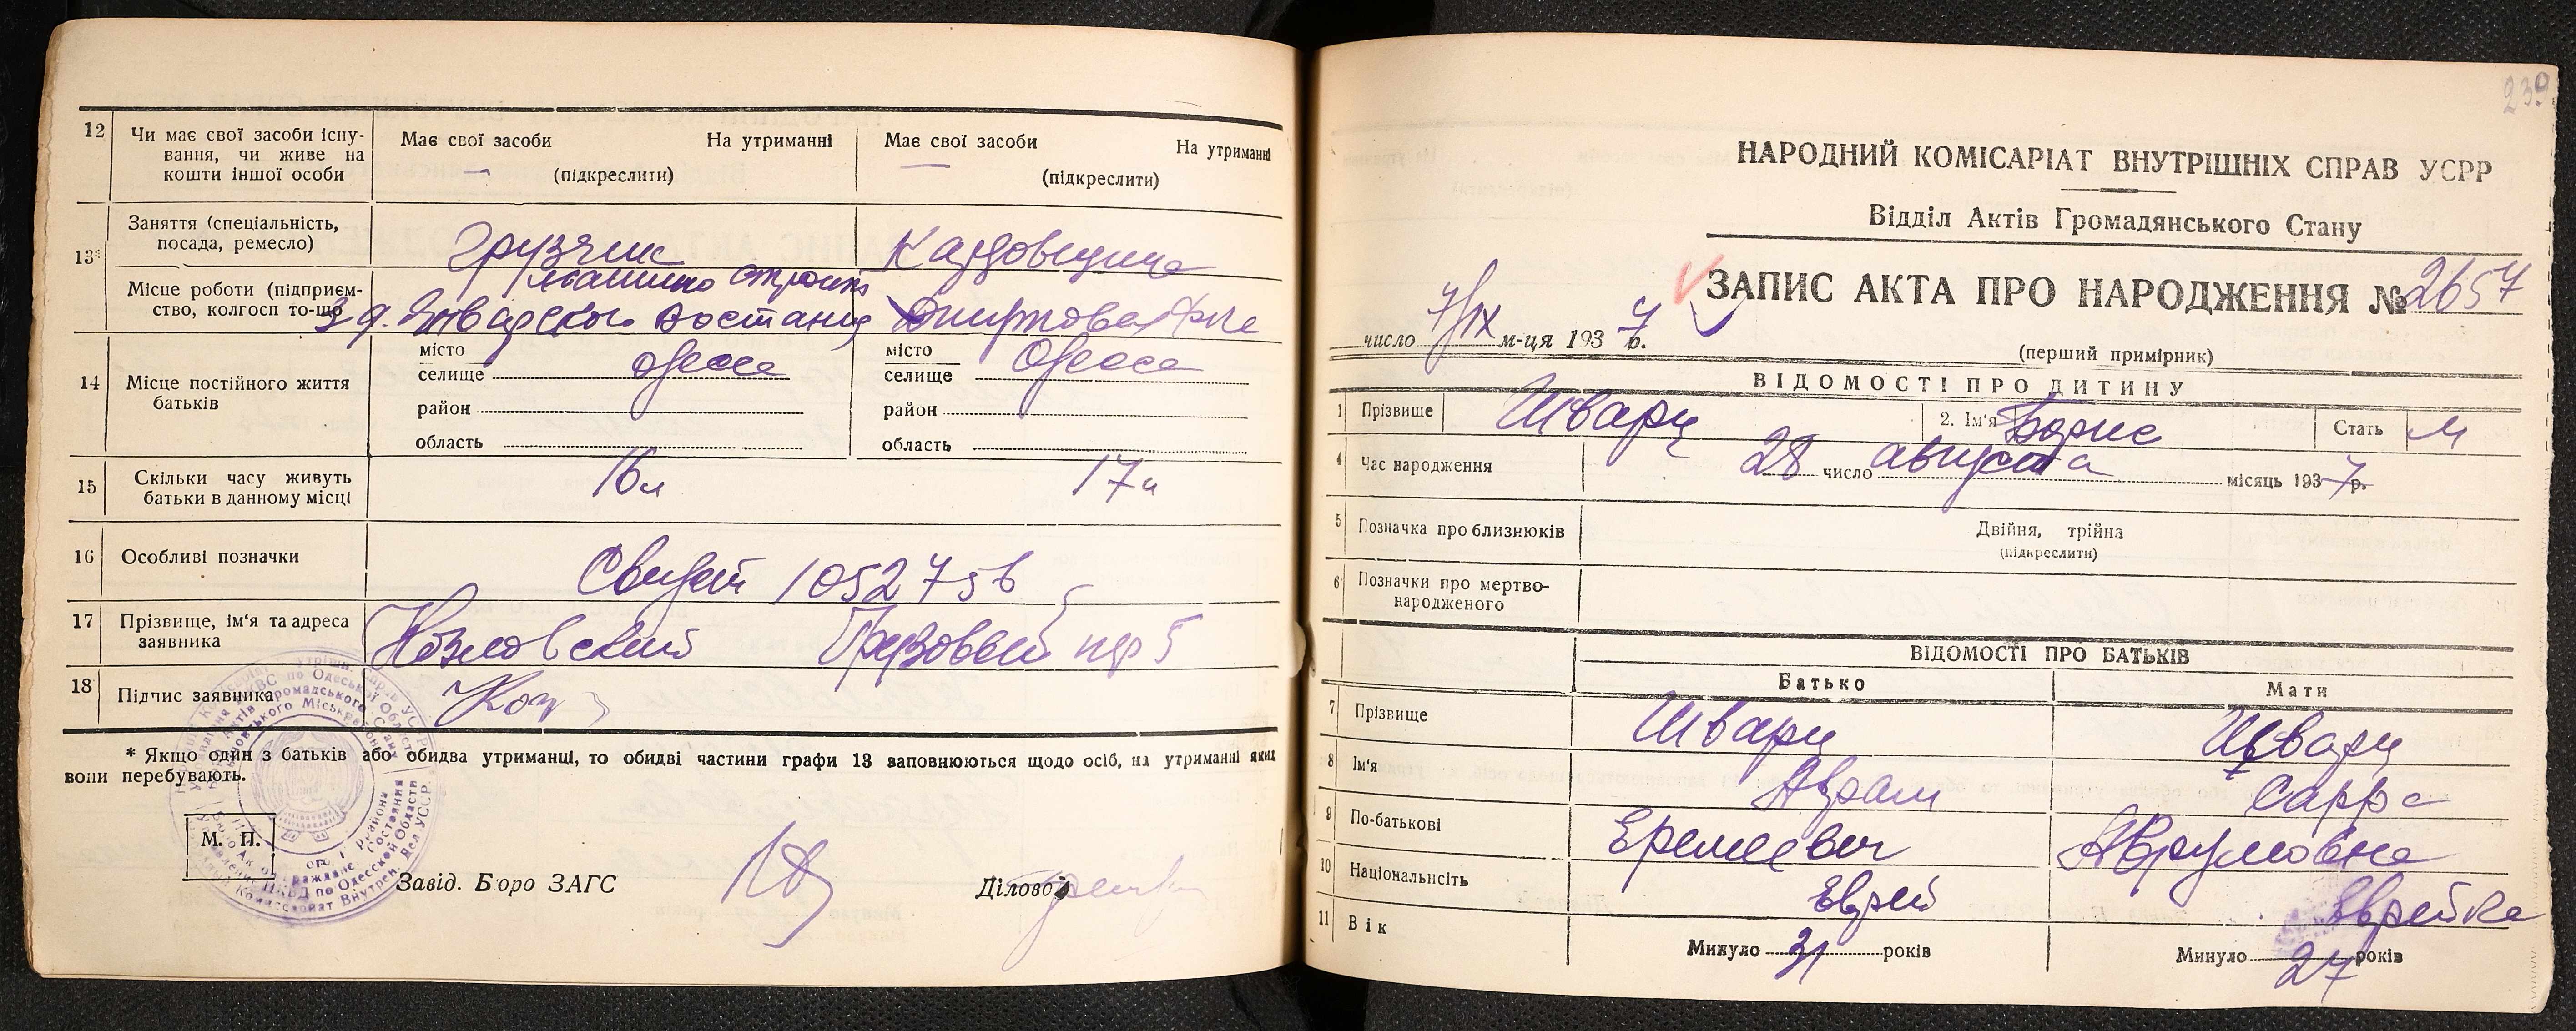 12
Чи має свої засоби існу-
вання, чи живе на
кошти іншої особи
Має свої засоби На утриманні
(підкреслити)
Має свої засоби На утриманні
(підкреслити)
13*
Заняття (спеціальність,
посада, ремесло)
Грузчик
Кладовщица
Місце роботи (підприєм-
ство, колгосп то-що
Январского Востания
14
Місце постійного життя
батьків
місто
селище Одесса
район
область
місто
селище Одесса
район
область
15
Скільки часу живуть
батьки в данному місці
16 л
17 л
16
Особливі позначки
Свидет 1052756
17
Прізвище, ім'я та адреса
заявника
Козловский пер 5
18
Підпис заявника
* Якщо один з батьків або обидва утриманці, то обидві частини графи 13 заповнюються щодо осіб, на утриманні яких
вони перебувають.
М. П.
Завід. Бюро ЗАГС
Діловод
239
НАРОДНИЙ КОМІСАРІАТ ВНУТРІШНІХ СПРАВ УСРР
Відділ Актів Громадянського Стану
ЗАПИС АКТА ПРО НАРОДЖЕННЯ № 2657
число 7/IX м-ця 1937 р.
(перший примірник)
ВІДОМОСТІ ПРО ДИТИНУ
1 Прізвище Шварц 2. Ім'я Борис Стать М
4 Час народження 28 число августа місяць 1937 р.
5 Позначка про близнюків
Двійня, трійна
(підкреслити)
6 Позначки про мертво-
народженого
ВІДОМОСТІ ПРО БАТЬКІВ
Батько Мати
7 Прізвище Шварц Шварц
8 Ім'я Абрам Сарра
9 По-батькові Еремеевич Аврумовна
10 Національність Еврей Еврейка
11 Вік Минуло 31 років Минуло 27 років